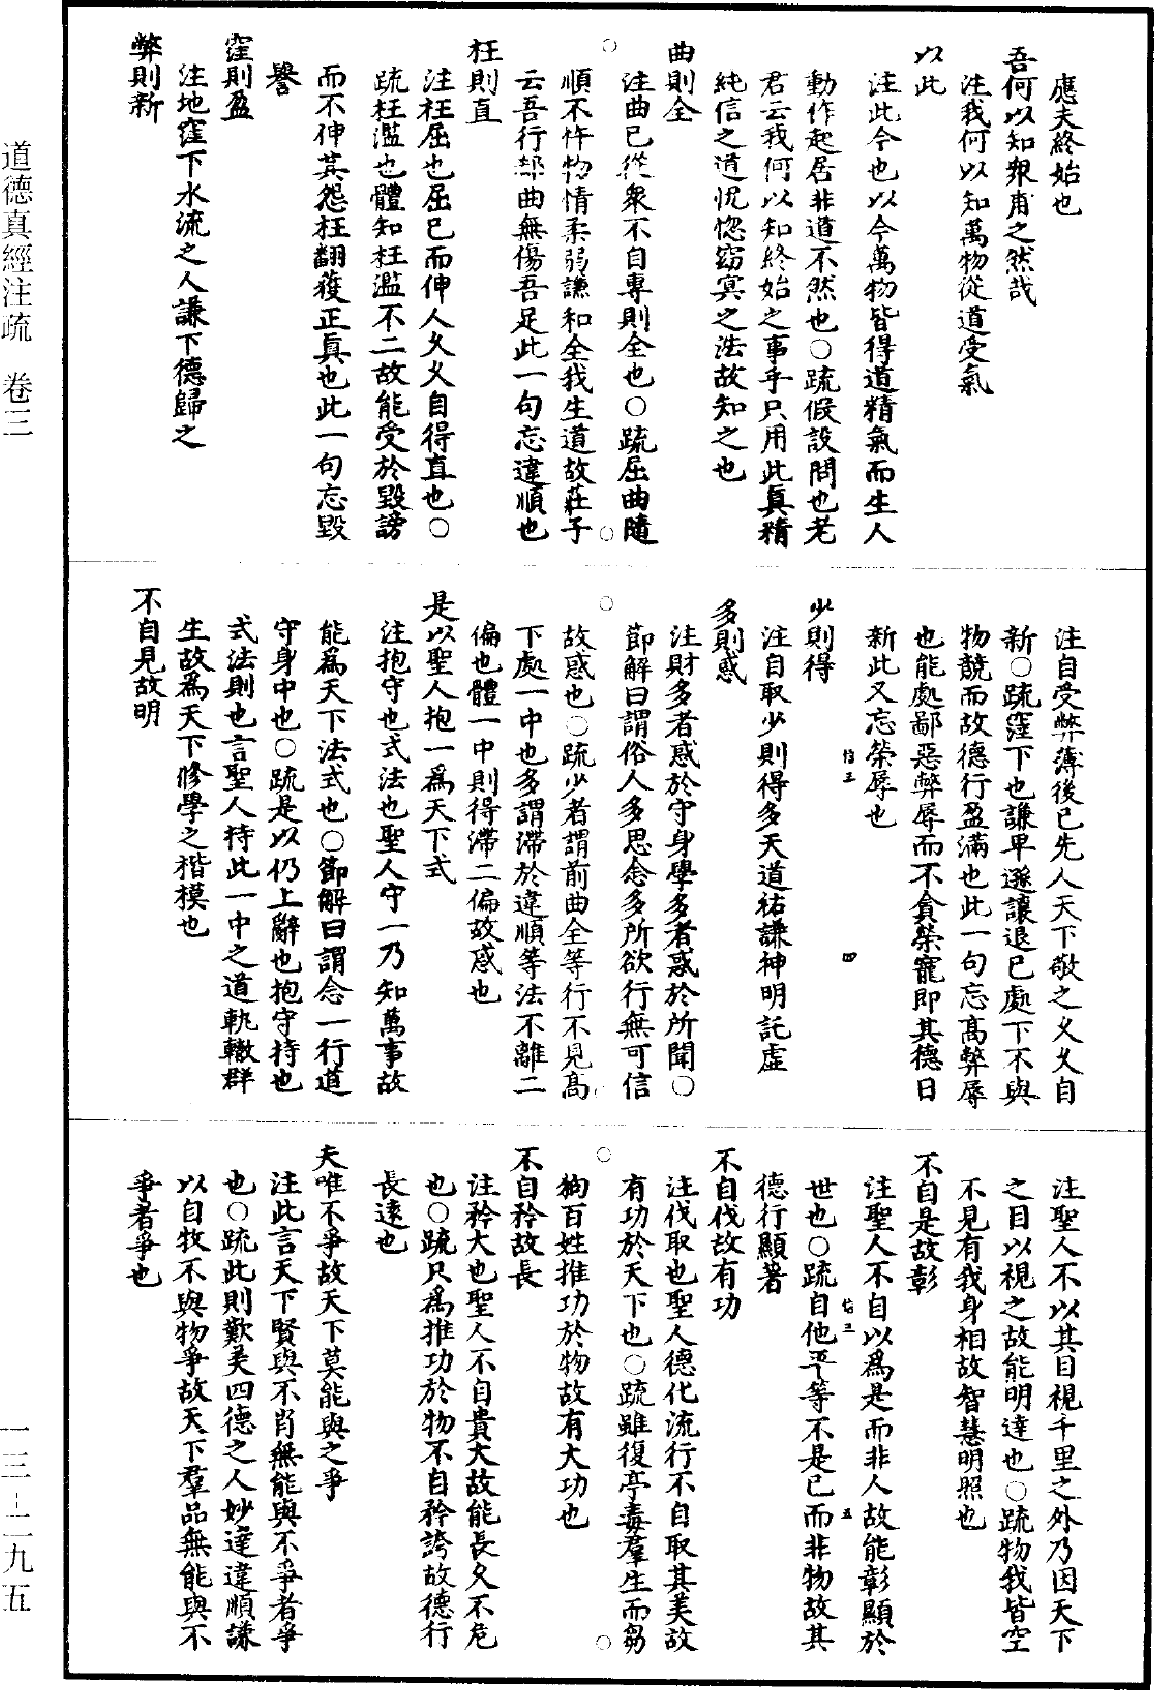 應夫終始也
吾何以知衆甫之然哉
注我何以知萬物從道受氣
以此
注此今也以今萬物皆得道精氣而生人
動作起居非道不然也○疏假設問也老
君云我何以知終始之事乎只用此真精
純信之道怳惚窈冥之法故知之也
曲則全
注曲己從衆不自專則全也○疏屈曲隨
順不忤物情柔弱謙和全我生道故莊子
云吾行郤曲無傷吾足此一句忘違順也
枉則直
注枉屈也屈己而伸人久久自得直也○
疏枉濫也體知枉濫不二故能受於毀謗
而不伸其怨枉翻獲正真也此一句忘毀
譽
窪則盈
注地窪下水流之人謙下德歸之
弊則新
注自受弊薄後己先人天下敬之久久自
新○疏窪下也謙卑遜讓退己處下不與
物競而故德行盈滿也此一句忘高弊辱
也能處鄙惡弊辱而不貪榮寵即其德日
新此又忘榮辱也
四
少則得
注自取少則得多天道祐謙神明託虛
多則惑
注財多者惑於守身學多者惑於所聞○
節解曰謂俗人多思念多所欲行無可信
故惑也○疏少者謂前曲全等行不見高
下處一中也多謂滯於違順等法不離二
偏也體一中則得滯二偏故惑也
是以聖人抱一爲天下式
注抱守也式法也聖人守一乃知萬事故
能爲天下法式也○節解曰謂念一行道
守身中也○疏是以仍上辭也抱守持也
式法則也言聖人持此一中之道軌轍群
生故爲天下修學之楷模也
不自見故明
注聖人不以其目視千里之外乃因天下
之目以視之故能明達也○疏物我皆空
不見有我身相故智慧明照也
不自是故彰
注聖人不自以爲是而非人故能彰顯於
五
世也○疏自他平等不是己而非物故其
德行顯著
不自伐故有功
注伐取也聖人德化流行不自取其美故
有功於天下也○疏雖復亭毒羣生而芻
狗百姓推功於物故有大功也
不自矜故長
注矜大也聖人不自貴大故能長久不危
也○疏只爲推功於物不自矜誇故德行
長遠也
夫唯不爭故天下莫能與之爭
注此言天下賢與不肖無能與不爭者爭
也○疏此則歎美四德之人妙達違順謙
以自牧不與物爭故天下羣品無能與不
爭者爭也
道德真經注疏 卷三
一三—二九五